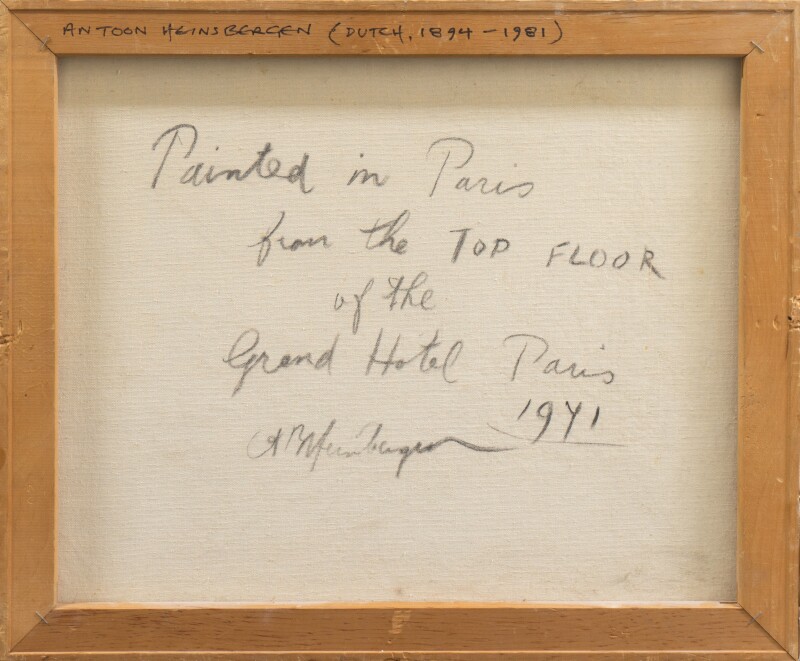 ANTOON HEINSBERGEN (DUTCH, 1894 - 1981)
Painted in Paris
from the TOP FLOOR
of the
Grand Hotel Paris
1971
A B Heinsbergen